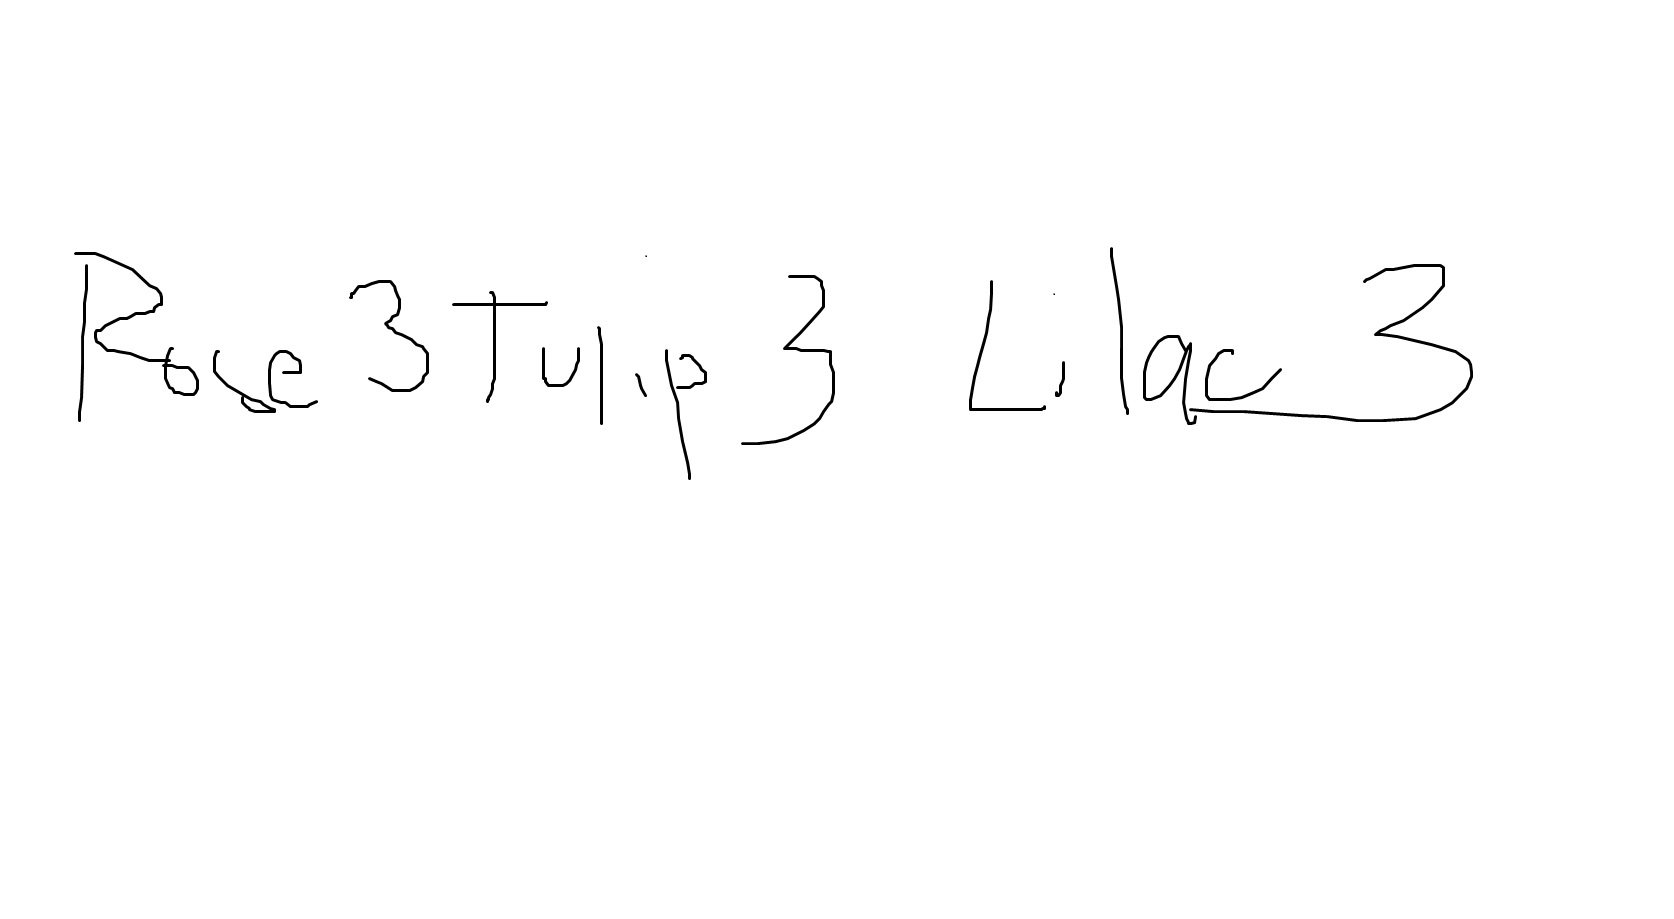 Rose 3 Tulip 3 Lilac 3